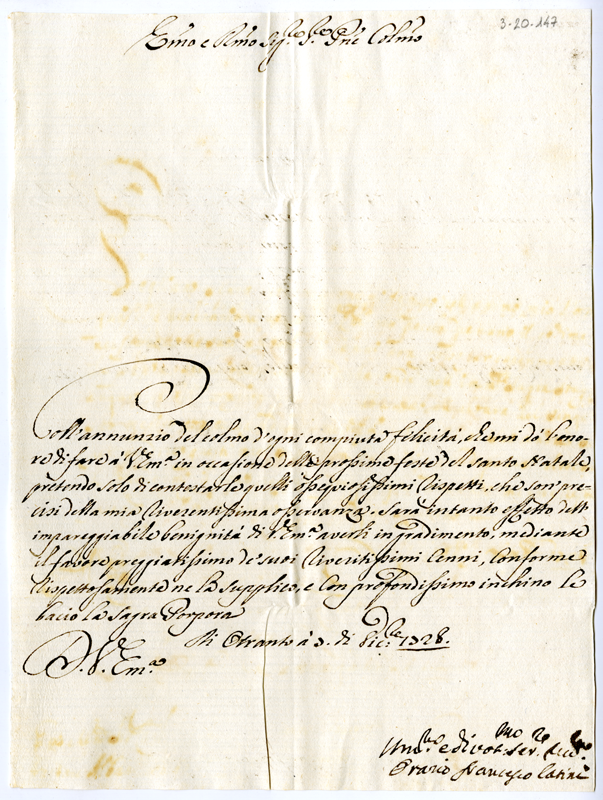 3-20-147
Emo e Rmo Sig.re S.re Pne Colmo
Coll'annunzio del colmo d'ogni compiuta felicitá, che mi dó l'ono-
re di fare á V. Em.a in occasione delle prossime feste del santo Natale,
pretendo solo di contestarle quelli ossequiosissimi rispetti, che son pre-
cisi della mia riverentissima osservanza. Sará intanto effetto dell'
impareggiabile benignitá di V. Em.a averli in gradimento, mediante
il favore preggiatissimo de' suoi riveritissimi Cenni, Conforme
rispettosamente ne la supplico, e Con profondissimo inchino le
bacio la Sagra Porpora
Di V. Em.a
Di Otranto á 3. di Dic.re 1728.
Um.mo e divot. ser.
Orazio Francesco Latini